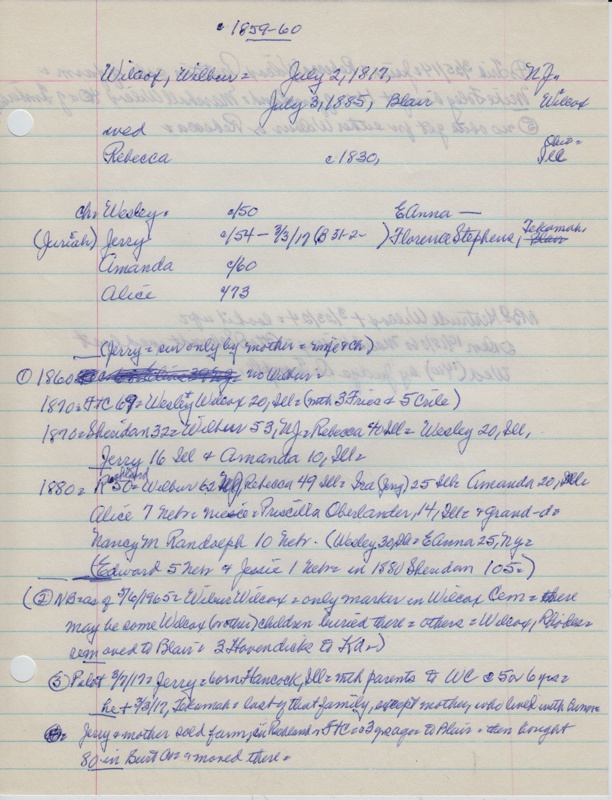 c 1859-60
Wilcox, Wilbur = July 2, 1817, N.J.,
July 3, 1885, Blair Wilcox
wed
Rebecca c 1830, Ohio = Ill
ch. Wesley = c/50 EAnna —
(Juriah) Jerry c/54 - 3/3/17 (B 31-2- ) Florence Stephens, Tekamah, Blair
Amanda c/60
Alice 473
(Jerry = sur only by mother = wife & ch)
① 1860 no Wilbur =
1870 = Ft C 69 = Wesley Wilcox 20, Ill = (with 3 Fries & 5 Crile)
1870 = Sheridan 32 = Wilbur 53, NJ = Rebecca 40 Ill = Wesley 20, Ill,
Jerry 16 Ill & Amanda 10, Ill =
1880 = Richland 30 = Wilbur 62 NJ Rebecca 49 Ill = Ira (Jerry) 25 Ill = Amanda 20, Ill =
Alice 7 Nebr = niece = Priscilla Oberlander, 14, Ill = & grand-d =
Nancy M Randolph 10 Nebr. (Wesley 30, Ill = EAnna 25, Ny =
Edward 5 Nebr & Jessie 1 Nebr = in 1880 Sheridan 105 =)
(② NB = as of 3/6/1965 = Wilbur Wilcox = only marker in Wilcox Cem = there
may be some Wilcox (mother) children buried there = others = Wilcox, Rhoades =
moved to Blair & 3 Hovendicks to Ka =)
③ Pilot 3/7/17 = Jerry = born Hancock, Ill = with parents to WC c 5 or 6 yrs =
he + 3/3/17, Tekamah = last of that family, except mother, who lived with
Jerry & mother sold farm, in Richland & Ft C = 3 yrs ago = to Blair = then bought
80 in Burt Co = moved there =